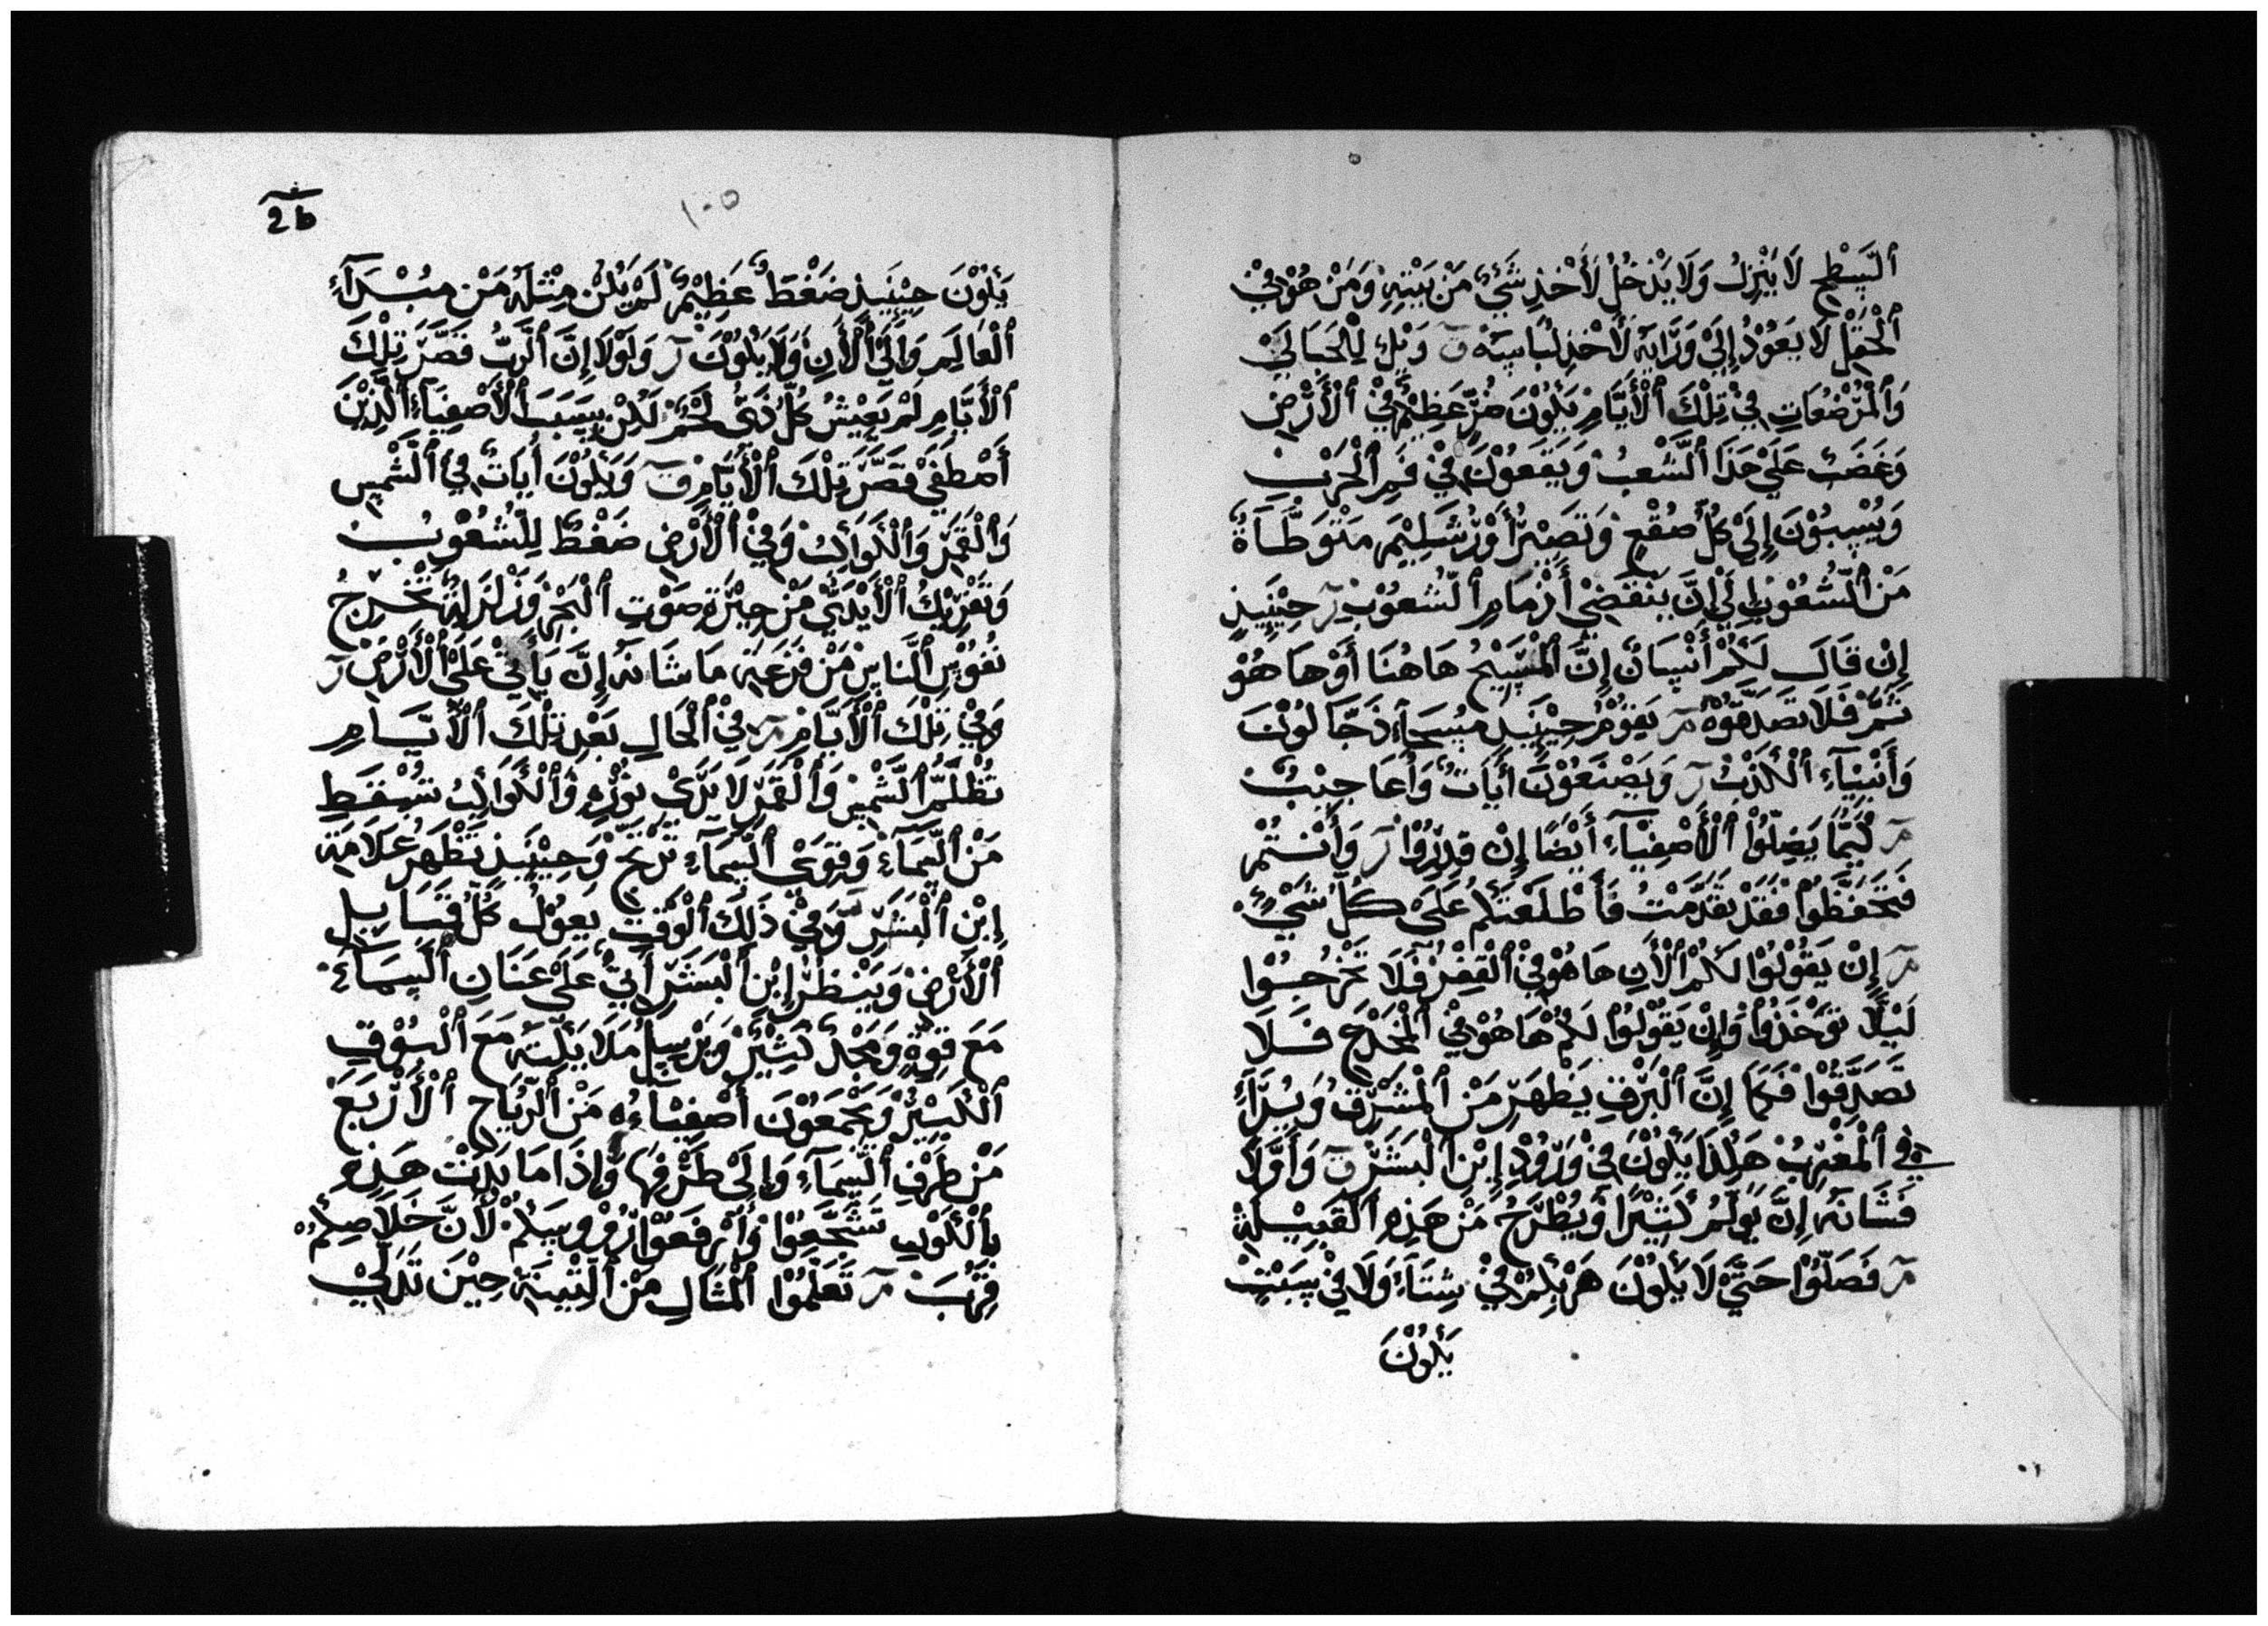 اَلسَّطِحِ لَا يَنْزِلُ وَلَا يَدْخُلُ لَأَخْذِ شَيْءٍ مَنْ بَيْتِهِ وَمَنْ هُوْ فِيْ
اَلْحَقْلِ لَا يَعُوْدُ إِلَيْ وَرَّايَه لَأَخْذِ لُبَاسِهْ ق وَيْلٌ لِلْحَبَالَيْ
وَاَلْمُرْضَعَاتِ فِيْ تِلْكَ اَلْأَيَّامِ يَكُوْنَ ضُرٌّ عَظِيْمٌ فِيْ اَلْأَرْضِ
وَغَضَبٌ عَلَيْ هَذَا اَلشَّعْبُ وَيَقَعُوْنَ فِيْ فَمِ اَلْحَرْبِ
وَيُسْبُوْنَ إِلَيْ كُلِّ صُقْعٍ وَتَصِيْرُ أَوْرُشَلِيْمَ مَتْوَطَّاَةٌ
مَنْ اَلشُّعُوْبِ إِلَيْ إِنَّ يَنْقَضِيْ أَزْمَامِ اَلشُّعُوْبِ ر حِيْنَيِذٍ
إِنْ قَالَ لَكُمْ أَنْسَانٌ إِنَّ اَلْمَسِيْحُ هَاهُنَا أَوْ هَا هُوْ
ثَمَّ فَلَا تَصَدِّقُوْهُ مر يَقُوْمُ حِيْنَيِذٍ مِسَحَآءِ دَجَّالُوْنَ
وَأَنْبِيَآءِ اَلْكَذْبُ ر وَيَصْنَعُوْنَ أَيَاتٌ وَأَعَاجِيْبُ
مر كَيْمَا يَضِلُّوْا اَلْأَصْفِيَآءِ أَيْضًا إِنْ قَدِرُوْا ر وَأَنْتُمْ
فَتَحَفَّظُوْا فَقَدْ تَقَدَّمْتُ فَأَطْلَعْتَكُمْ عَلَيْ كُلِّ شَيْءٍ
مر إِنْ يَقُوْلُوْا لَكُمْ اَلْأَنِ هَا هُوْ فِيْ اَلْقَفِرْ فَلَا تَخْرُجُوْا
لَيْلًا تُوْخَذُوْا وَإِنْ يَقُوْلُوْا لَكُمْ هَا هُوْ فِيْ اَلْمَخْدَعِ فَلَا
تَصَدِّقُوْا فَكَمَا إِنَّ اَلْبَرْقِ يَظْهَرِ مَنْ اَلْمَشْرِقِ وَيُرَآءُ
فِي اَلْمَغْرِبُ هَكَذَا يَكُوْنَ فِيْ وَرُوْدِ إِبْنِ اَلْبَشَرِ ق وَأَوَّلًا
فَشَانَهُ إِنَّ يُوْلَمُ كَثِيْرًا وَيُطْرَحُ مَنْ هَذِهِ اَلْقَبِيْلَةِ
مر فَصَلُّوْا حَتَّيْ لَا يَكُوْنَ هَرْبِكُمْ فِيْ شِتَآءِ وَلَا فِيْ سَبَتٍ
يَكُوْنَ
2b
١٠٥
يَكُوْنَ حِيْنَيِذٍ ضَغْطٌ عَظِيْمٌ لَمْ يَكُنْ مِثْلَهُ مَنْ مبْدَآءِ
اَلْعَالَمِ وَإِلَيْ اَلْأَنِ وَلَا يَكُوْنَ ر وَلَوْلَا إِنَّ اَلْرَبُّ قَصَّرَ تِلْكَ
اَلْأَيَّامِ لَمْ يَعِيْشُ كُلُّ ذَيْ لَحْمٍ لَكِنْ بِسَبَبِ اَلْأَصْفِيَآءِ اَلَّذِيْنَ
أَصْطَفَيْ قَصَّرَ تِلْكَ اَلْأَيَّامِ ق وَيَكُوْنَ أَيَاتٌ فِيْ اَلْشَّمْسِ
وَاَلْقَمَرِ وَاَلْكَوَاكِبُ وَفِيْ اَلْأَرْضِ ضَغْطٌ لِلشُّعُوْبُ
وَتَفْرِيْكُ اَلْأَيْدَيْ مَنْ حِيْرَةِ صَوْتِ اَلْبَحْرِ وَزَلْزَلَةٌ تَخْرِجُ
نُفُوْسِ اَلنَّاسِ مَنْ فَزْعَةِ مَا شَانَهُ إِنَّ يَأَتِيْ عَلَيْ اَلْأَرْضِ ر
وَفِيْ تِلْكَ اَلْأَيَّامِ مر فِيْ اَلْحَالِ بَعْدِ تِلْكَ اَلْأَيَّامِ
تُظْلَمُ اَلشَّمْسِ وَاَلْقَمَرِ لَا يَرَيْ نُوْرِهِ وَاَلْكَوَاكِبُ تَسْقَطِ
مَنْ اَلسَّمَآءِ وَقِوَيْ اَلسَّمَآءِ تَرْتَجُّ وَحِيْنَيِذٍ تَظْهَرُ عَلَامَةِ
إِبْنِ اَلْبَشَرِ وَفِيْ ذَلِكَ اَلْوَقْتِ يَعُوْلُ كُلُّ قَبَايِلِ
اَلْأَرْضِ وَيَنْظُرْ إِبْنِ اَلْبَشَرِ أَتِيٌ عَلَيْ عَنَانِ اَلسَّمَآءِ
مَعَ قِوَّةٍ وَمَجْدٍ كَثِيْرٌ وَيَرْسِلُ مَلَايَكَتَهُ مَعَ اَلْبُوْقِ
اَلْكَبِيْرِ وَيَجْمَعُوْنَ أَصْفِيَاءُهُ مَنْ اَلرِّيَاحِ اَلْأَرْبَعَ
مَنْ طَرْفِ اَلسَّمَآءِ وَإِلَيْ طَرْفِهَا وَإِذَا مَا بَدَتْ هَذِهِ
بِالْكَوْنِ تَشَجَّعُوْا وَاَرْفَعَوْا رُوْوسَكُمْ لَأَنَّ خَلَاصِكُمْ
قِرْبَ مر تَعَلَّمُوْا اَلْمَثَالِ مَنْ اَلتِّيْنَةِ حِيْنَ تَدَلِّيْ